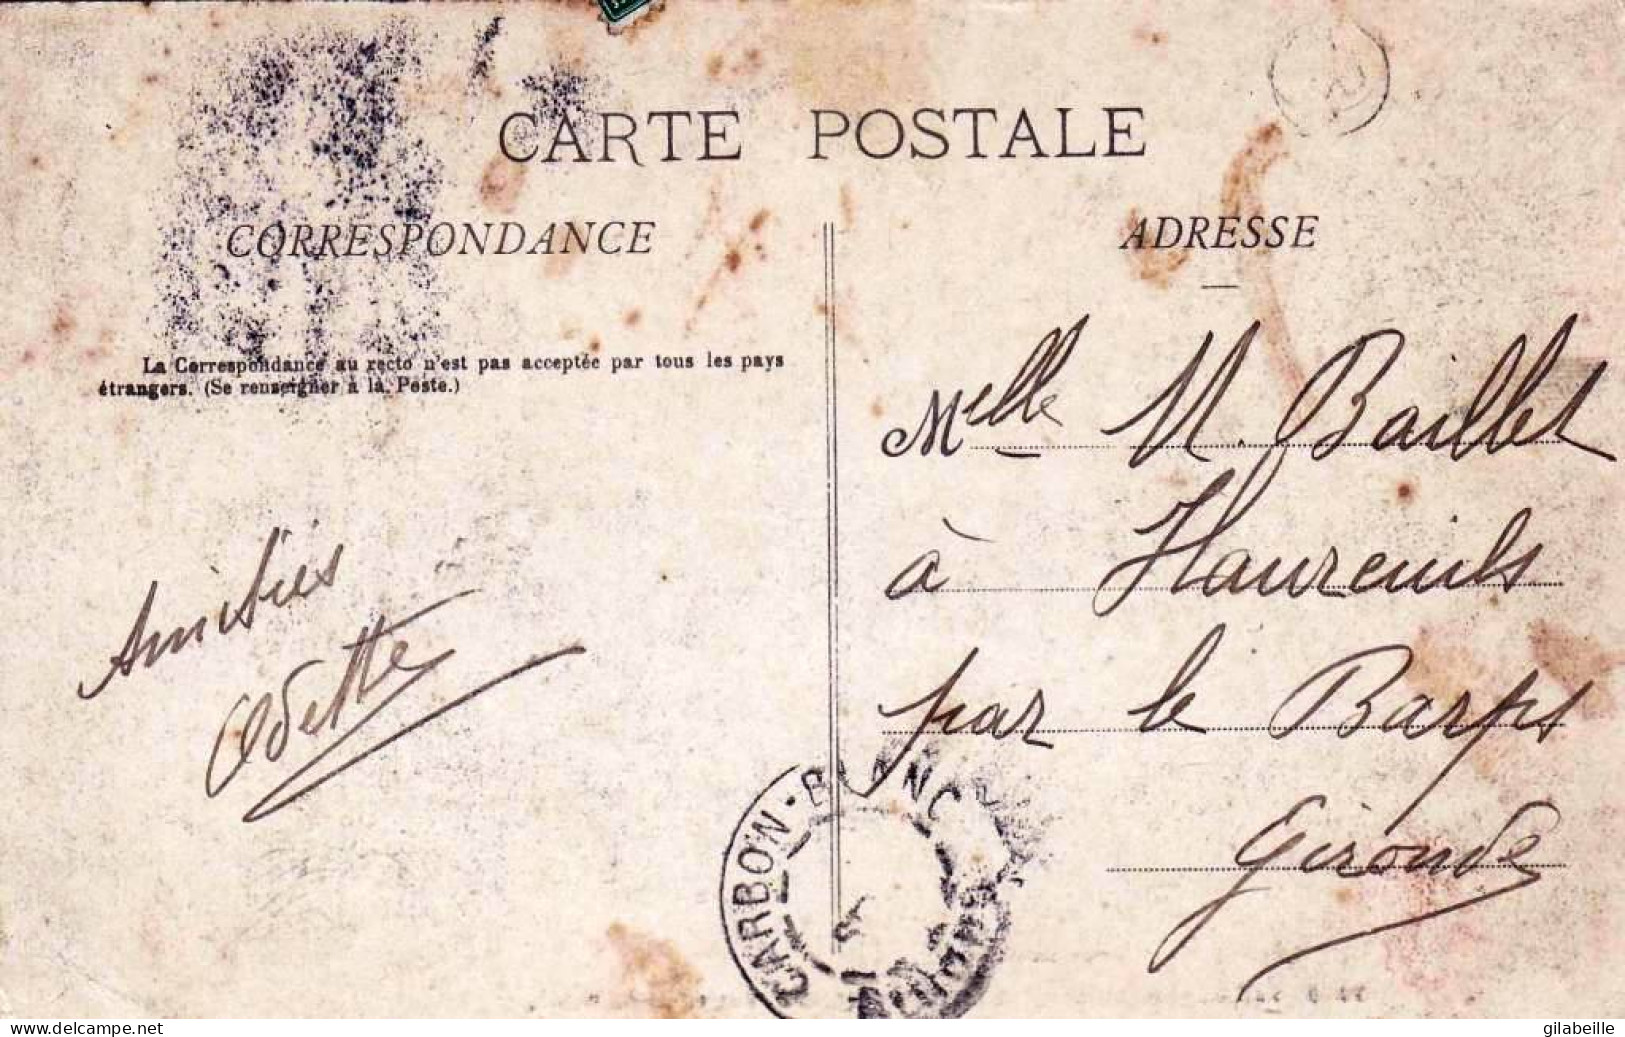 CARTE POSTALE
CORRESPONDANCE
ADRESSE
La Correspondance au recto n'est pas acceptée par tous les pays
étrangers. (Se renseigner à la Poste.)
Melle M. Baillet
à Haureuils
par le Barps
Gironde
Amitiés
Odette
CARBON-BLANC
GIRONDE
www.delcampe.net
gilabeille